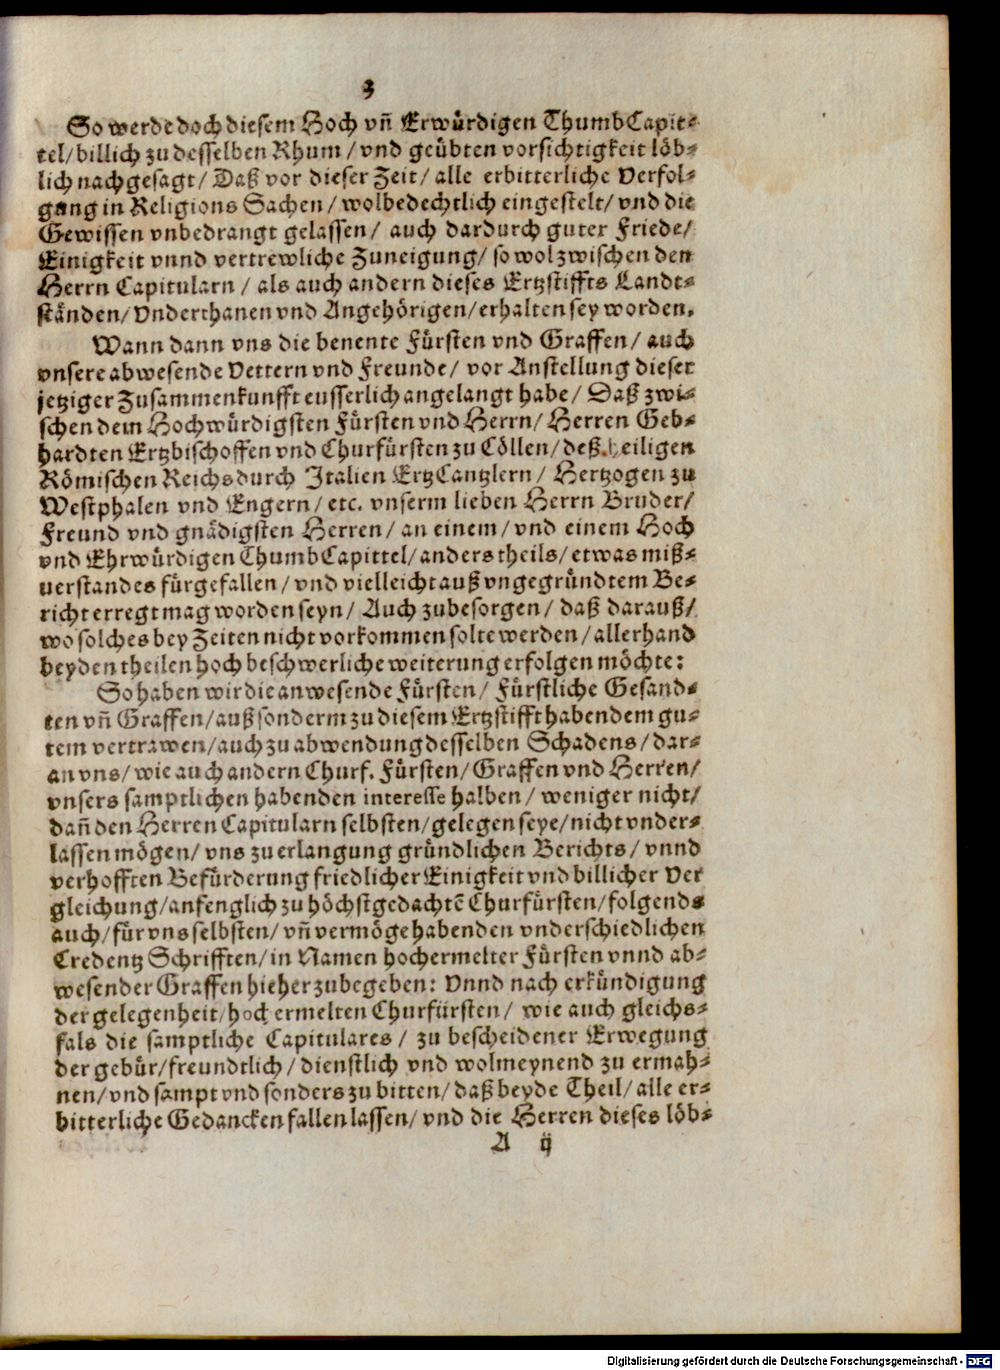 3
So werde doch diesem Hoch vñ Erwürdigen ThumbCapit-
tel/billich zu desselben Rhum/vnd geübten vorsichtigkeit löb-
lich nachgesagt/Daß vor dieser Zeit/alle erbitterliche Verfol-
gung in Religions Sachen/wolbedechtlich eingestelt/vnd die
Gewissen vnbedrangt gelassen/ auch dardurch guter Friede/
Einigkeit vnnd vertrewliche Zuneigung/so wol zwischen den
Herrn Capitularn/als auch andern dieses Ertzstiffts Landt-
ständen/Vnderthanen vnd Angehörigen/erhalten sey worden.
Wann dann vns die benente Fürsten vnd Graffen/auch
vnsere abwesende Vettern vnd Freunde/vor Anstellung dieser
jetziger Zusammenkunfft eusserlich angelangt habe/Daß zwi-
schen dem Hochwürdigsten Fürsten vnd Herrn/Herren Geb-
hardten Ertzbischoffen vnd Churfürsten zu Cöllen/deß heiligen
Römischen Reichs durch Italien ErtzCantzlern/Hertzogen zu
Westphalen vnd Engern/etc. vnserm lieben Herrn Bruder/
Freund vnd gnädigsten Herren/an einem/vnd einem Hoch
vnd Ehrwürdigen ThumbCapittel/anders theils/etwas miß-
uerstandes fürgefallen/vnd vielleicht auß vngegründtem Be-
richt erregt mag worden seyn/Auch zubesorgen/daß darauß/
wo solches bey Zeiten nicht vorkommen solte werden/allerhand
beyden theilen hoch beschwerliche weiterung erfolgen möchte:
So haben wir die anwesende Fürsten/Fürstliche Gesand-
ten vñ Graffen/auß sonderm zu diesem Ertzstifft habendem gu-
tem vertrawen/auch zu abwendung desselben Schadens/dar-
an vns/wie auch andern Churf. Fürsten/Graffen vnd Herren/
vnsers samptlichen habenden interesse halben/weniger nicht/
dañ den Herren Capitularn selbsten/gelegen seye/nicht vnder-
lassen mögen/vns zu erlangung gründlichen Berichts/vnnd
verhofften Befürderung friedlicher Einigkeit vnd billicher Ver
gleichung/anfenglich zu höchstgedachtē Churfürsten/folgends
auch/für vns selbsten/vñ vermöge habenden vnderschiedlichen
Credentz Schrifften/in Namen hochermelter Fürsten vnnd ab-
wesender Graffen hieher zubegeben: Vnnd nach erkündigung
der gelegenheit/hoch ermelten Churfürsten/ wie auch gleichs-
fals die samptliche Capitulares/ zu bescheidener Erwegung
der gebür/freundtlich/dienstlich vnd wolmeynend zu ermah-
nen/vnd sampt vnd sonders zu bitten/daß beyde Theil/alle er-
bitterliche Gedancken fallen lassen/vnd die Herren dieses löb-
A ij
Digitalisierung gefördert durch die Deutsche Forschungsgemeinschaft - DFG